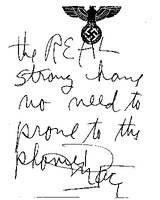 the REAL
strong have
no need to
prove to the
phonies